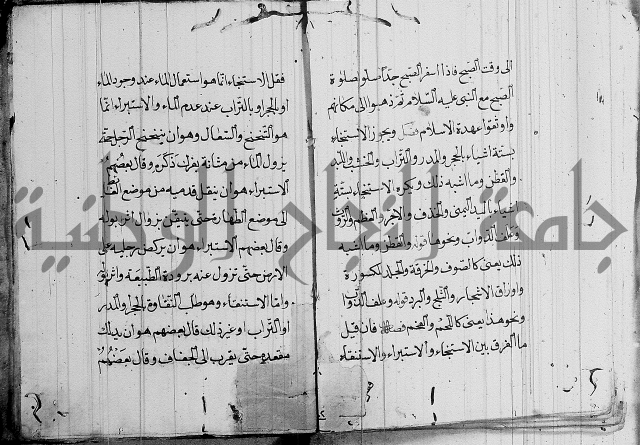 الى وقت الصبح فاذا اسفر الصبح جدا صلوا صلوة
الصبح مع النبى عليه السلام ثم ذهبوا الى مكانهم
واوثقوا عهدة الاسلام فصل ويجوز الاستنجاء
بستة اشياء بالحجر والمدر والتراب والخشب واللبد
والقطن وما اشبه ذلك ويكره الاستنجاء بستة
اشياء باليد اليمنى والخذف والآجر والعظم والروث
وعلف الدواب ونحوها قوله والقطن وما اشبه
ذلك يعنى كالصوف والخرقة والجلد المكسورة
واوراق الاشجار والثلج والبرد قوله وعلف الدواب
ونحو هذا يعنى كاللحم والفحم فصل فان قيل
ما الفرق بين الاستنجاء والاستبراء والاستنقاء
فقل الاستنجاء انما هو استعمال الماء عند وجود الماء
او الحجر او بالتراب عند عدم الماء والاستبراء انما
هو التنحنح والسعال وهو ان يتنحنح الرجل حتى
يزول الماء من مثانة بفرك ذكره وقال بعضهم
الاستبراء هو ان ينقل قدميه من موضع الغائط
الى موضع الطهارة حتى يتيقن بزوال اثر بوله
وقال بعضهم الاستبراء هو ان يركض رجليه على
الارض حتى تزول عنه برودة الطبيعة واثر بوله
واما الاستنقاء وهو طلب النقاوة بالحجر والمدر
او التراب وغير ذلك قال بعضهم هو ان يدلك
مقعده حتى يقرب الى الجفاف وقال بعضهم
جامعة النجاح الوطنية